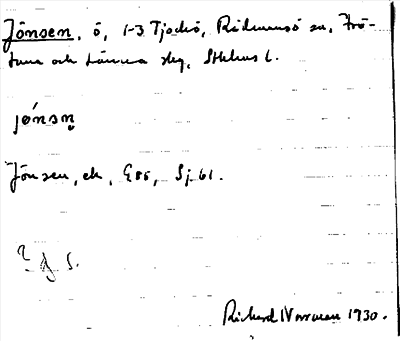 Jönsen, ö, 1-3 Tjockö, Rådmansö sn, Frö-
tuna och Länna skg, Sthlms l.
jónsn̥
Jönsen, ek, G86, Sj. 61.
S.
Rickard 1930.